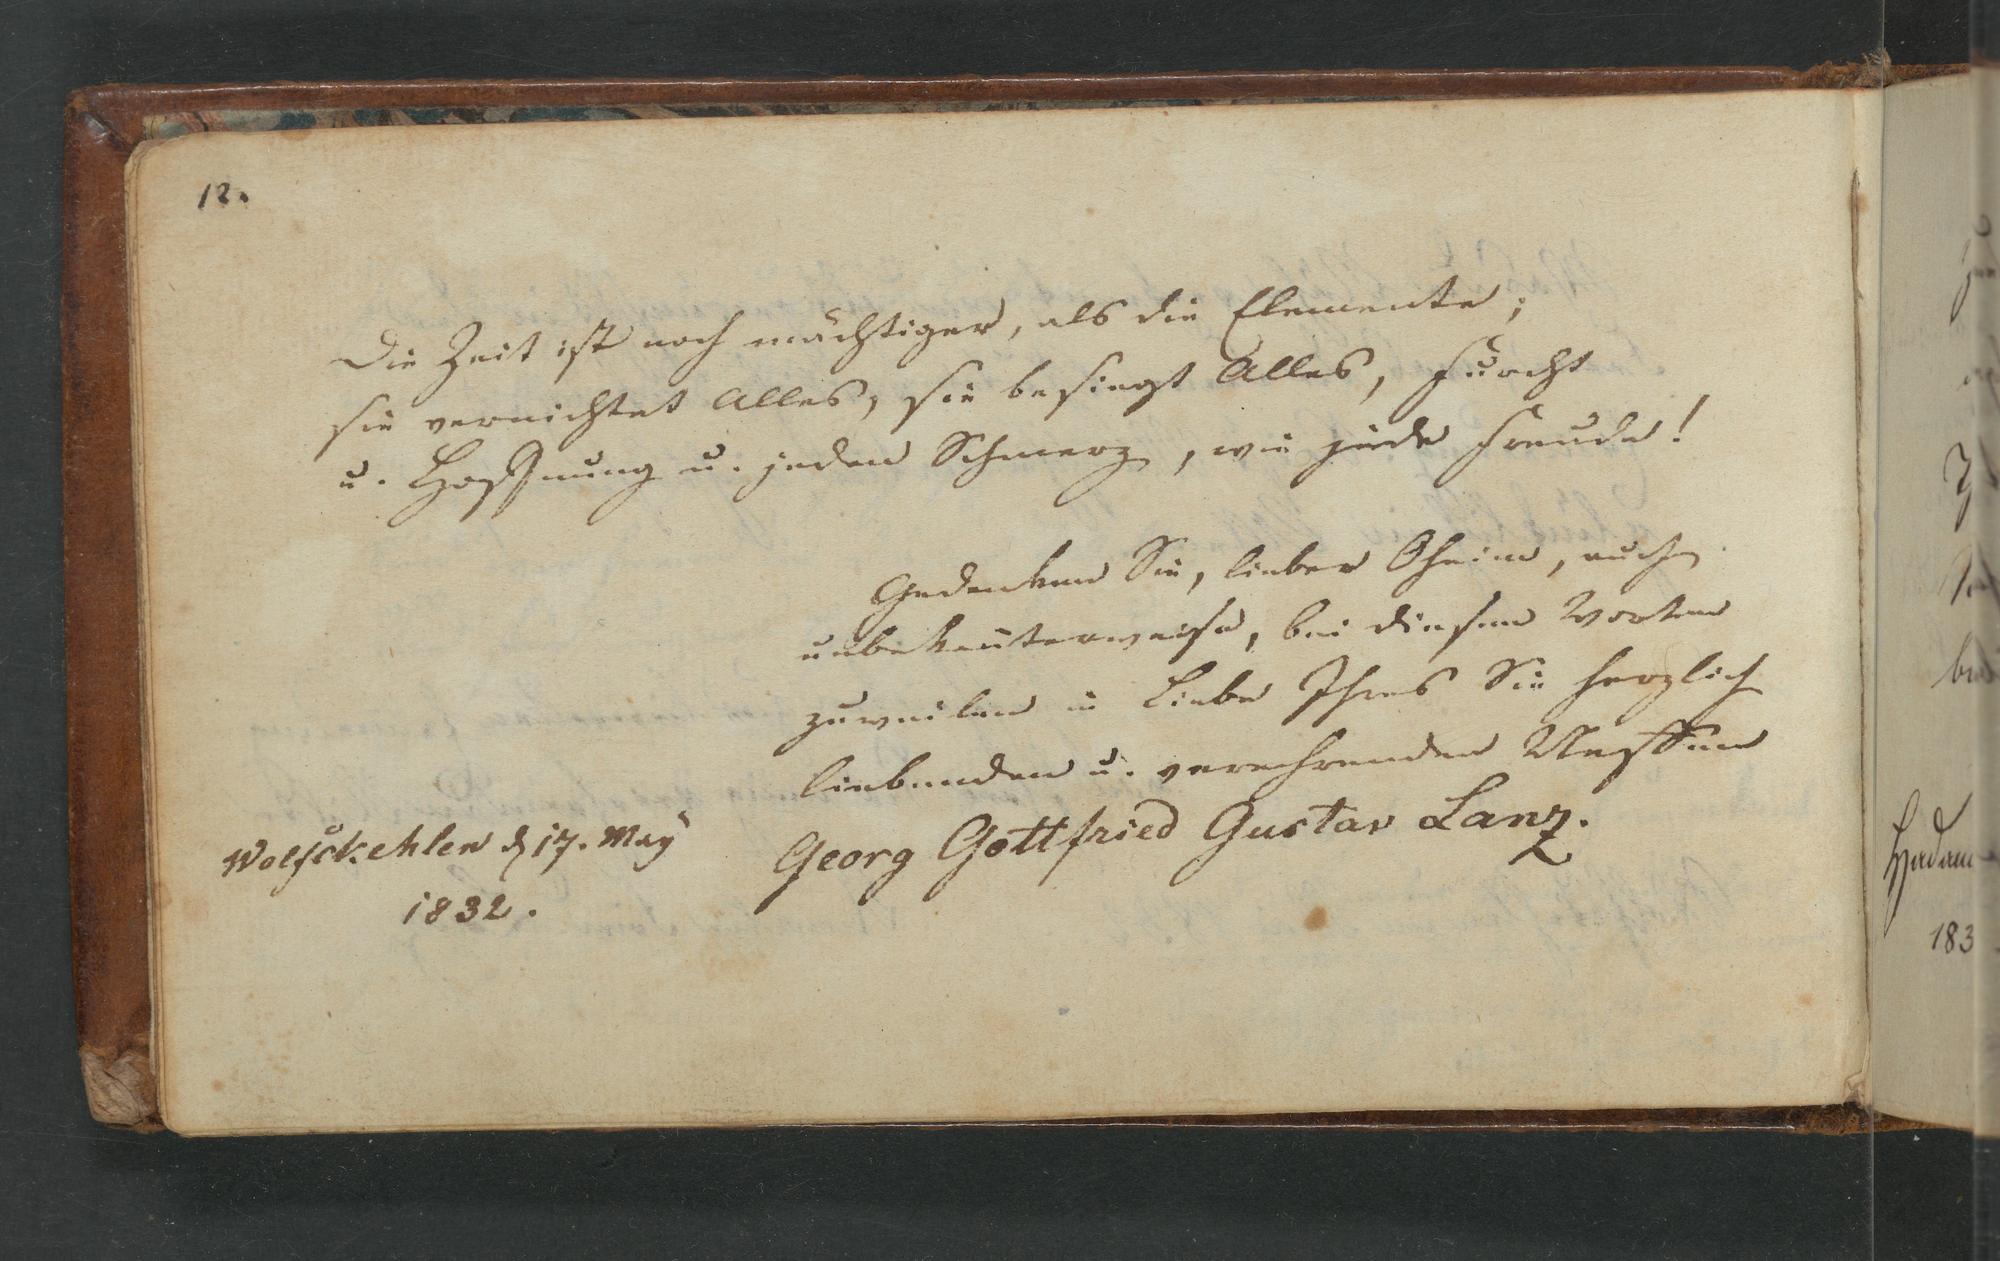 12.
Die Zeit ist noch mächtiger, als die Elemente;
sie vernichtet Alles, sie besiegt Alles, Furcht
u. Hoffnung u. jeden Schmerz, wie jede Freude!
Gedenken Sie, lieber Oheim, auch
unbekannterweise, bei diesen Worten
zuweilen in Liebe Ihres Sie herzlich
liebenden u. verehrenden Neffen
Georg Gottfried Gustav Lanz.
Wolfskehlen d 17. May
1832.
183